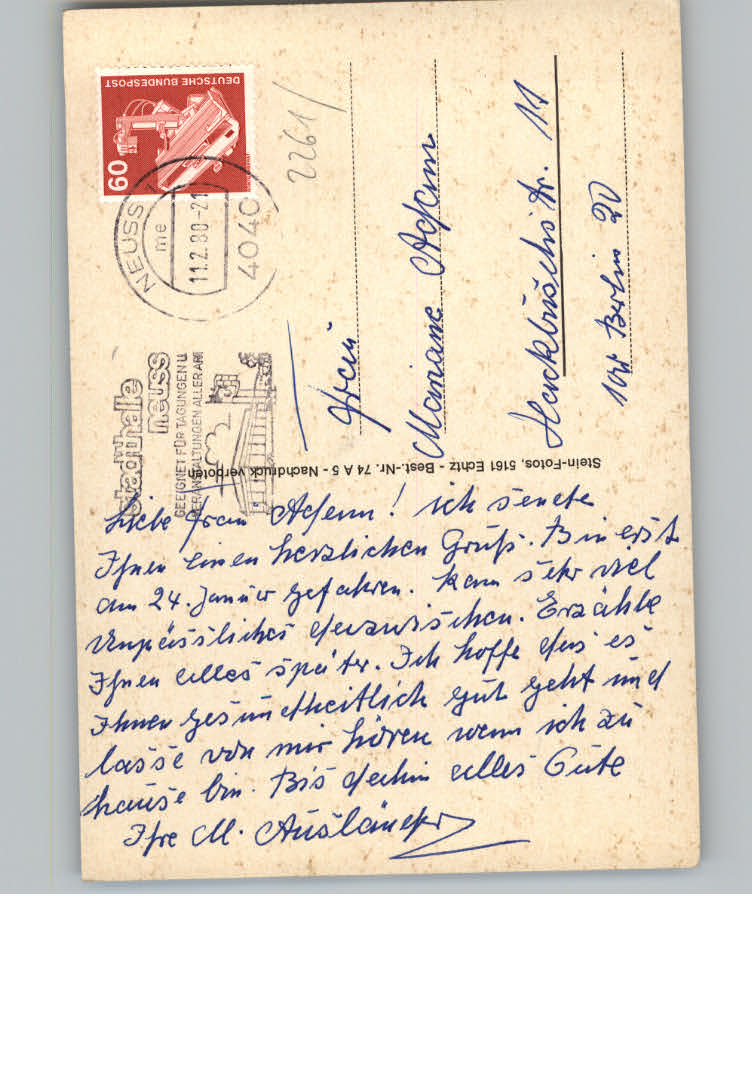 DEUTSCHE BUNDESPOST
60
NEUSS 1
me
11.2.80-21
4040
2261/
stadthalle
neuss
GEEIGNET FÜR TAGUNGEN U.
VERANSTALTUNGEN ALLER ART
Frau
Mariane Adam
Hackbuschstr. 11
1000 Berlin 20
Stein-Fotos, 5161 Echtz - Best.-Nr. 74 A 5 - Nachdruck verboten
Liebe Frau Adam! ich sende
Ihnen einen herzlichen Gruß. Bin erst
am 24. Januar gefahren. kam sehr viel
Unpässliches dazwischen. Erzähle
Ihnen alles später. Ich hoffe das es
Ihnen gesundheitlich gut geht und
lasse von mir hören wenn ich zu
hause bin. Bis dahin alles Gute
Ihre M. Ausländer